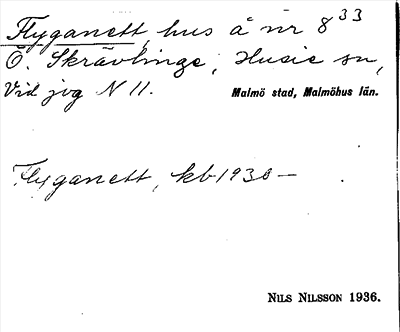 Flyganett, hus å nr 8³³
Ö. Skrävlinge, Husie sn,
Vid jvg N 11. Malmö stad, Malmöhus län.
Flyganett, kb 1930 —
NILS NILSSON 1936.